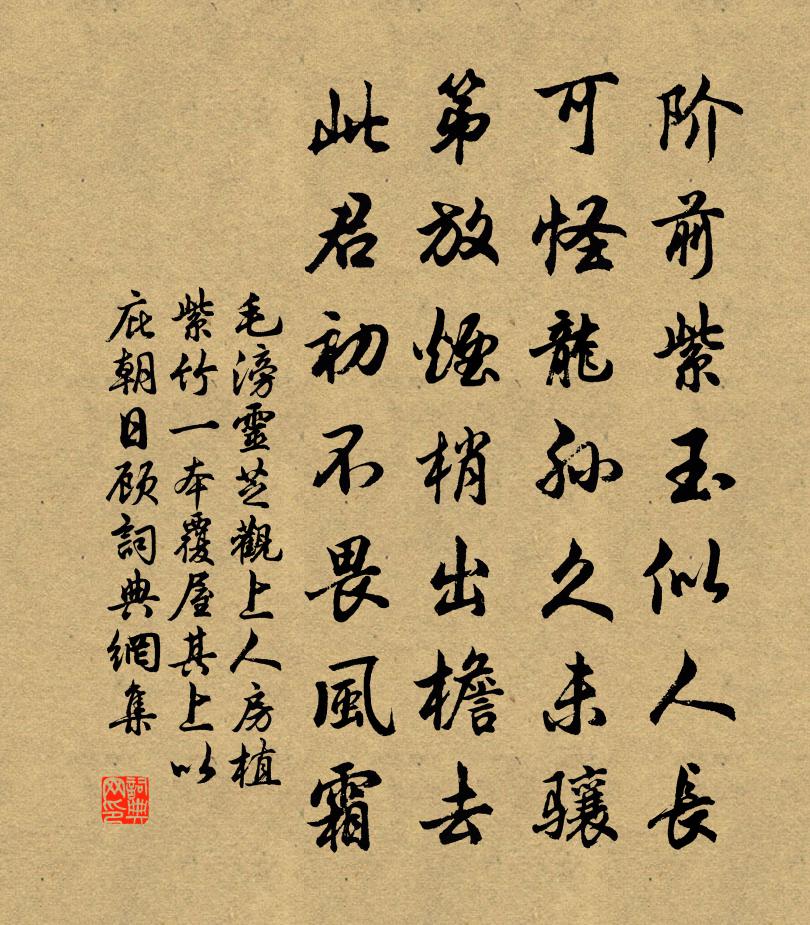 阶前紫玉似人長
可怪龍孫久未骧
第放煙梢出檐去
此君初不畏風霜
毛滂靈芝觀上人房植
紫竹一本覆屋其上以
庇朝日顾詞典網集
詞典